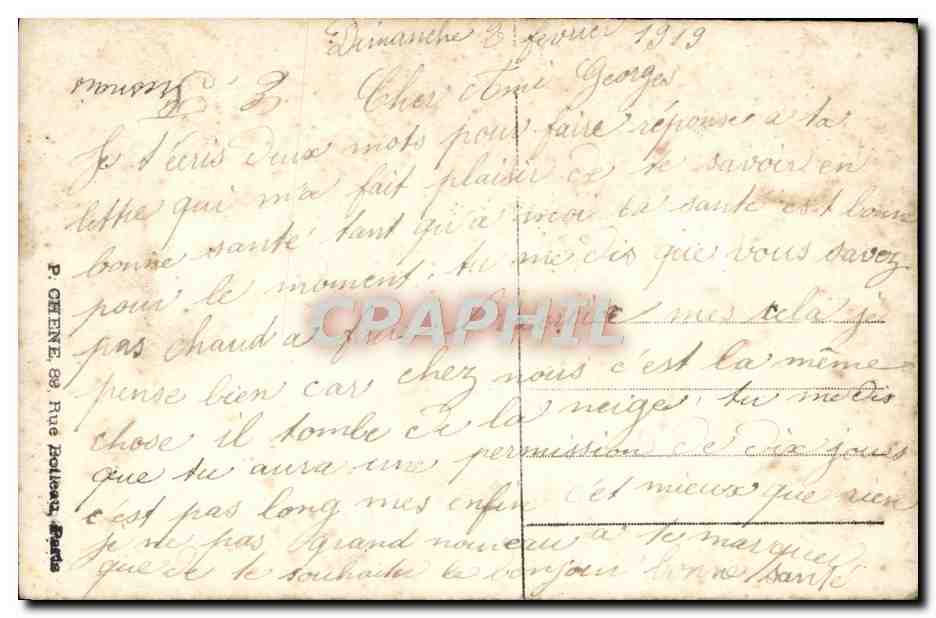 Dimanche 8 fevrier 1919
Cher Ami Georges
Je t'écris deux mots pour faire réponse a ta
lettre qui m'a fait plaisir de te savoir en
bonne santé tant qu'a moi la santé est bonn
pour le moment. tu me dis que vous savez
pas chaud a mes cela je
pense bien car chez nous c'est la même
chose il tombe de la neige. tu me dis
que tu aura une permission de dix jours
c'est pas long mes enfin c'et mieux que rien
Je ne pas grand nouveau a te marquer
que de te souhaiter le bonjour bonne santé
P. CHENE, Rue Boileau, Paris
CPARPHIL